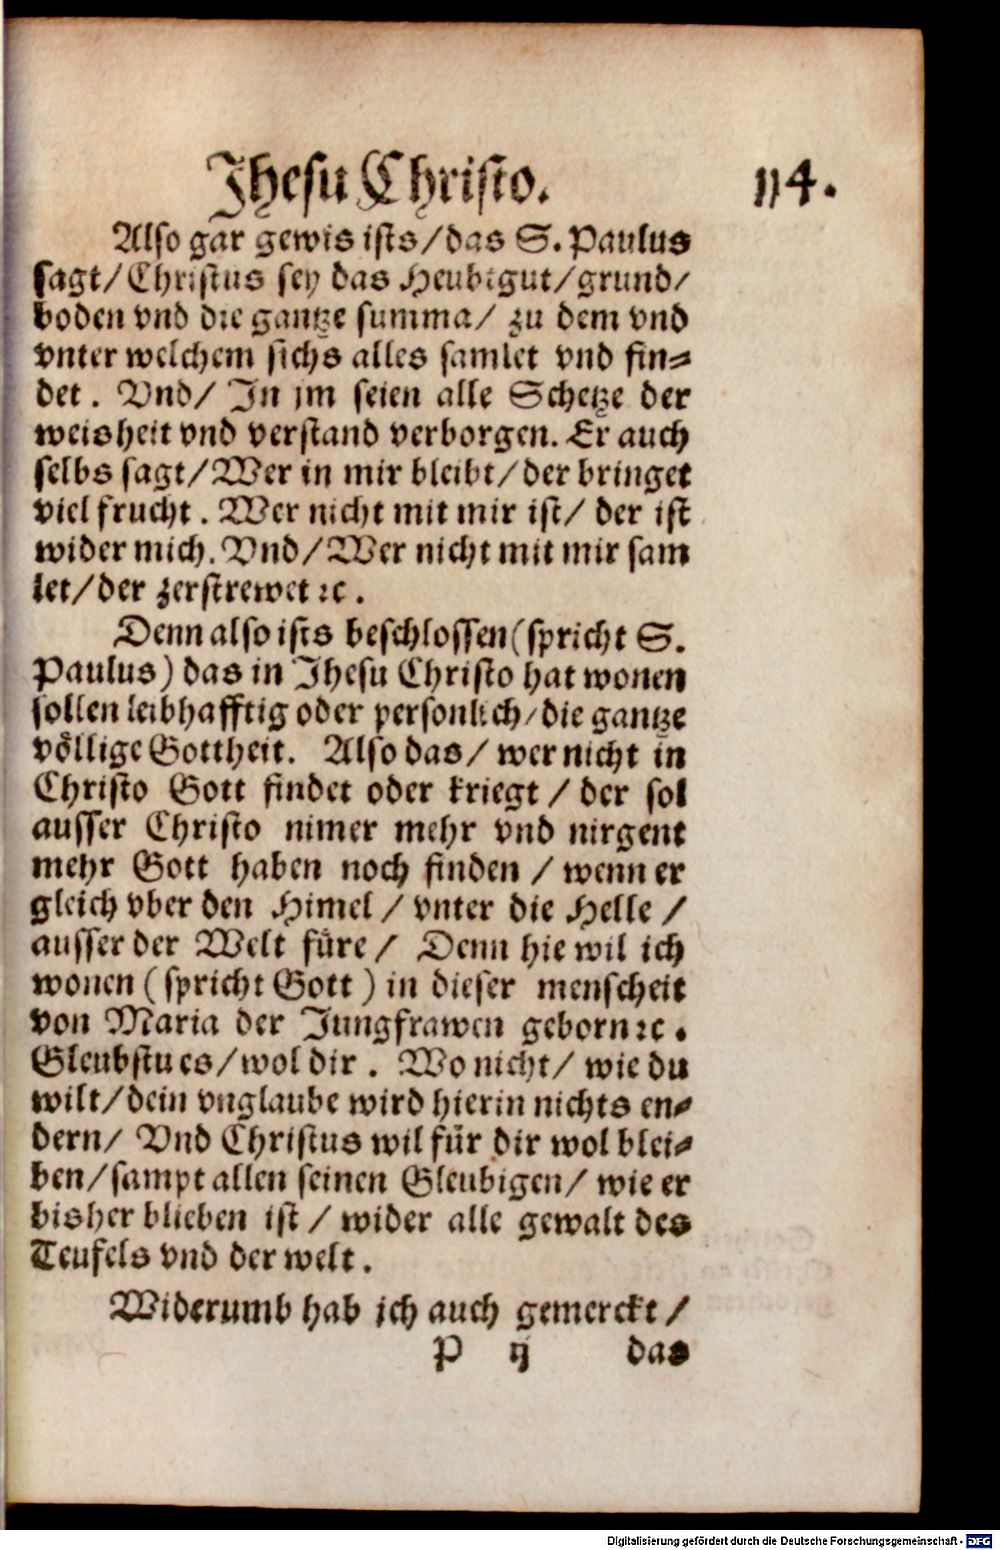 Jhesu Christo. 114.
Also gar gewis ists/das S. Paulus
sagt/Christus sey das Heubtgut/grund/
boden vnd die gantze summa/ zu dem vnd
vnter welchem sichs alles samlet vnd fin⸗
det. Vnd/ In jm seien alle Schetze der
weisheit vnd verstand verborgen. Er auch
selbs sagt/Wer in mir bleibt/der bringet
viel frucht. Wer nicht mit mir ist/ der ist
wider mich. Vnd/Wer nicht mit mir sam
let/der zerstrewet ꝛc.
Denn also ists beschlossen (spricht S.
Paulus) das in Jhesu Christo hat wonen
sollen leibhafftig oder personlich/die gantze
voͤllige Gottheit. Also das/ wer nicht in
Christo Gott findet oder kriegt/ der sol
ausser Christo nimer mehr vnd nirgent
mehr Gott haben noch finden/ wenn er
gleich vber den Himel/ vnter die Helle/
ausser der Welt fuͤre/ Denn hie wil ich
wonen (spricht Gott) in dieser menscheit
von Maria der Jungfrawen geborn ꝛc.
Gleubstu es/wol dir. Wo nicht/ wie du
wilt/dein vnglaube wird hierin nichts en⸗
dern/ Vnd Christus wil fuͤr dir wol blei⸗
ben/sampt allen seinen Gleubigen/ wie er
bisher blieben ist/ wider alle gewalt des
Teufels vnd der welt.
Widerumb hab ich auch gemerckt/
P ij das
Digitalisierung gefördert durch die Deutsche Forschungsgemeinschaft - DFG